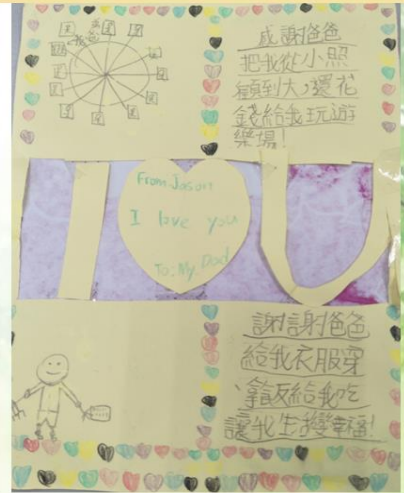 爸
我爸
成謝爸爸
把我從小照
顧到大，還花
錢給我玩遊
樂場！
I U
From Jason
I love you
To: My Dad
謝謝爸爸
給我衣服穿
、拿飯給我吃
讓我生變幸福！